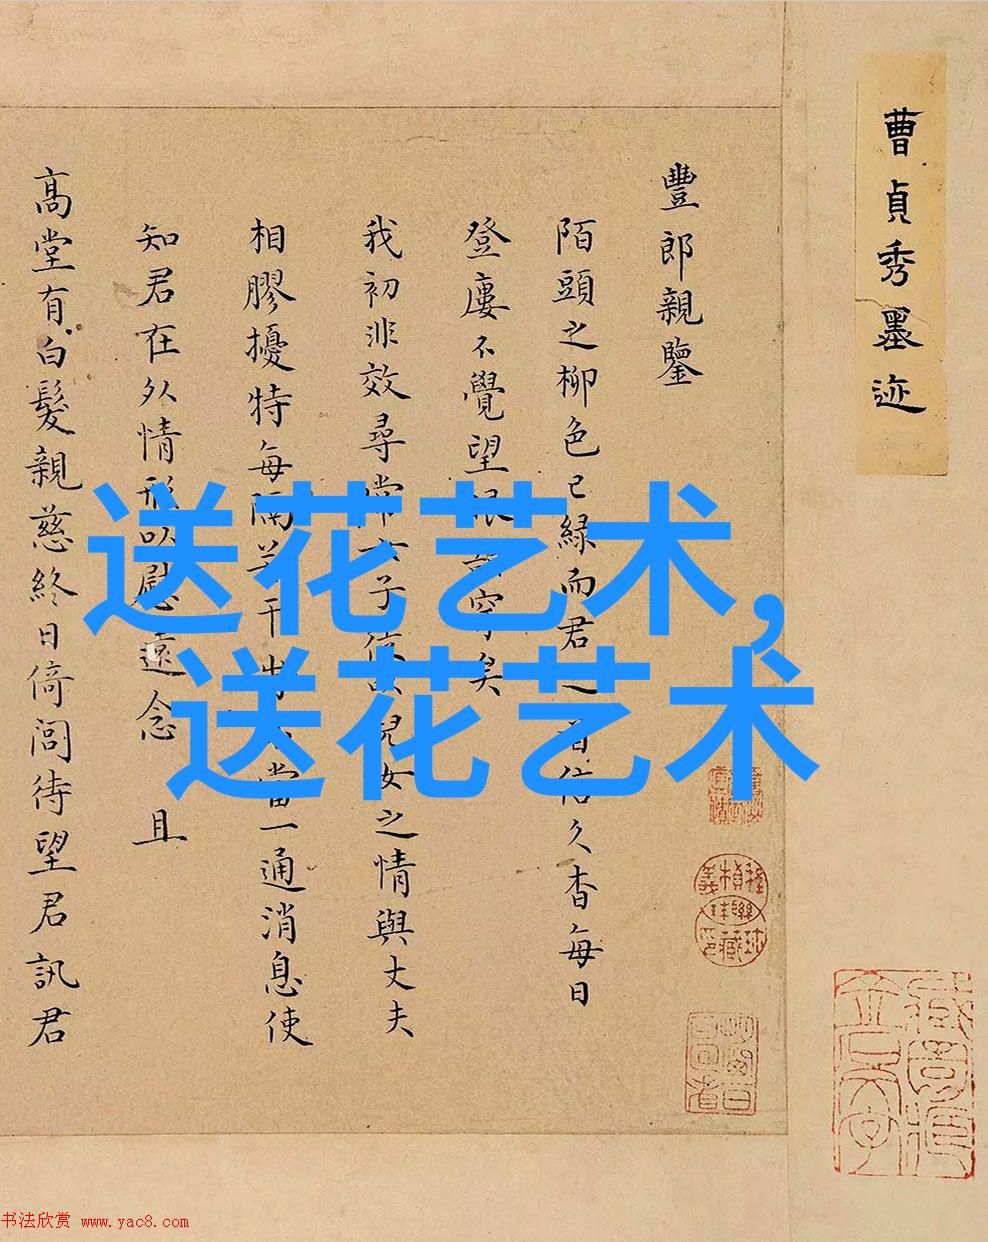 曹貞秀墨迹
豐郎親鑒
陌頭之柳色已緑而君之音信久杳每日
登廔不覺望眼
穿矣
我初非效尋常女子
兒女之情與丈夫
相膠擾特每隔
當一通消息使
知君在外情形以慰遠念 且
高堂有白髮親慈終日倚閭待望君訊君
送花艺术,
送花艺术
书法欣赏 www.yac8.com